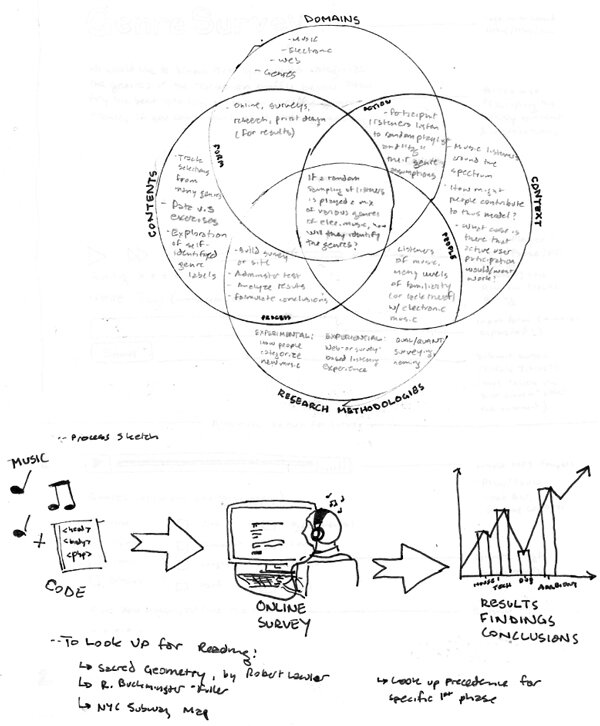 DOMAINS
- Music
- Electronic
- Web
- Genres
- Online, surveys,
research, print design
(for results)
FORM
ACTION
- Participant
listeners listen
to random playlist
and "tag"
their genre
assumptions
CONTENTS
- Track
selections
from
many genres
- Data viz
exercises
- Exploration
of self-
identified
genre
labels
CONTEXT
- Music listeners
around the
spectrum
- How might
people contribute
to this model?
- What case is
there that
active user
participation
would/won't
work?
If a random
sampling of listeners
is played a mix
of various genres
of elec. music, how
will they identify
the genres?
- Build survey
or site
- Administer test
- Analyze results
- Formulate conclusions
PROCESS
PEOPLE
Listeners
of music,
many levels
of familiarity
(or lack thereof)
w/ electronic
music
EXPERIMENTAL:
how people
categorize
new music
EXPERIENTIAL:
Web- or survey-
based listening
experience
QUAL/QUANT:
surveying,
naming
RESEARCH METHODOLOGIES
-- Process Sketch
MUSIC
+
<head>
<body>
<php>
CODE
ONLINE
SURVEY
HOUSE
TECH
DUB
AMBIENT
RESULTS
FINDINGS
CONCLUSIONS
-- To Look Up for Reading:
↳ Sacred Geometry, by Robert Lawlor
↳ R. Buckminster-Fuller
↳ NYC Subway Map
↳ Look up precedence for
specific 1st phase